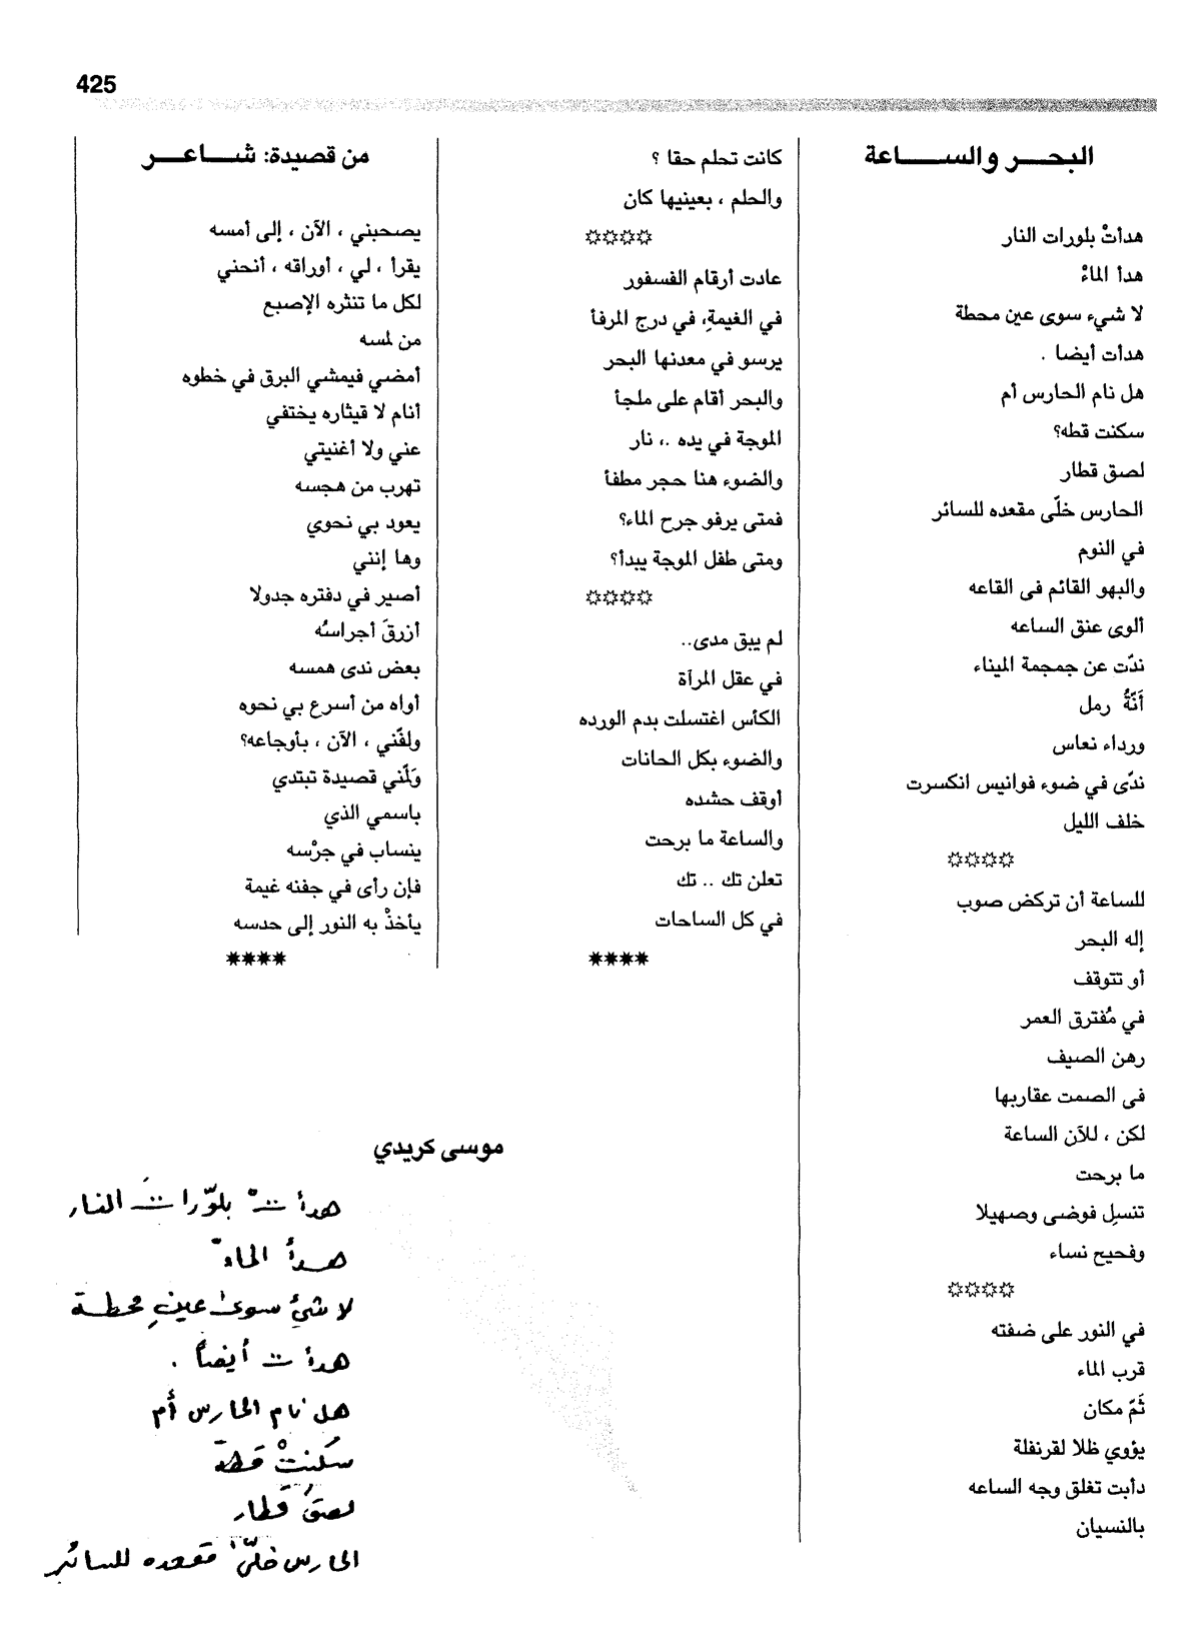 425
البحر والساعة
هدأتْ بلورات النار
هدأ الماءْ
لا شيء سوى عين محطة
هدأت أيضا .
هل نام الحارس أم
سكنت قطه؟
لصق قطار
الحارس خلّى مقعده للسائر
في النوم
والبهو القائم فى القاعه
ألوى عنق الساعه
ندّت عن جمجمة الميناء
أَنَّةُ رمل
ورداء نعاس
ندّى في ضوء فوانيس انكسرت
خلف الليل
۞۞۞۞
للساعة أن تركض صوب
إله البحر
أو تتوقف
في مُفترق العمر
رهن الصيف
فى الصمت عقاربها
لكن ، للآن الساعة
ما برحت
تنسل فوضى وصهيلا
وفحيح نساء
۞۞۞۞
في النور على ضفته
قرب الماء
ثَمّ مكان
يؤوي ظلا لقرنفلة
دأبت تغلق وجه الساعه
بالنسيان
كانت تحلم حقا ؟
والحلم ، بعينيها كان
۞۞۞۞
عادت أرقام الفسفور
في الغيمةِ، في درج المرفأ
يرسو في معدنها البحر
والبحر أقام على ملجأ
الموجة في يده .، نار
والضوء هنا حجر مطفأ
فمتى يرفو جرح الماء؟
ومتى طفل الموجة يبدأ؟
۞۞۞۞
لم يبق مدى..
في عقل المرآة
الكأس اغتسلت بدم الورده
والضوء بكل الحانات
أوقف حشده
والساعة ما برحت
تعلن تك .. تك
في كل الساحات
****
من قصيدة: شاعر
يصحبني ، الآن ، إلى أمسه
يقرأ ، لي ، أوراقه ، أنحني
لكل ما تنثره الإصبع
من لمسه
أمضي فيمشي البرق في خطوه
أنام لا قيثاره يختفي
عني ولا أغنيتي
تهرب من هجسه
يعود بي نحوي
وها إنني
أصير في دفتره جدولا
أزرقَ أجراسُه
بعض ندى همسه
أواه من أسرع بي نحوه
ولفّني ، الآن ، بأوجاعه؟
وَلّني قصيدة تبتدي
باسمي الذي
ينساب في جرْسه
فإن رأى في جفنه غيمة
يأخذْ به النور إلى حدسه
****
موسى كريدي
هدأتْ بلوّراتَ النار
هدأَ الماءْ
لا شيءَ سوى عينِ محطة
هدأت أيضاً .
هل نام الحارس أم
سكَنتْ قطة
لصقَ قطار
الحارس خلّى مقعده للسائر